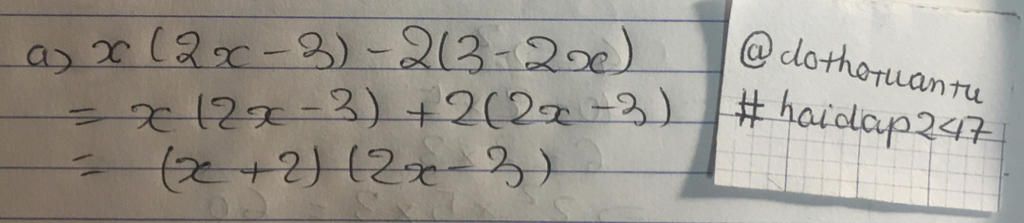 a) x(2x-3)-2(3-2x)
= x(2x-3)+2(2x-3)
= (x+2)(2x-3)
@dothotuantu
#haidap247